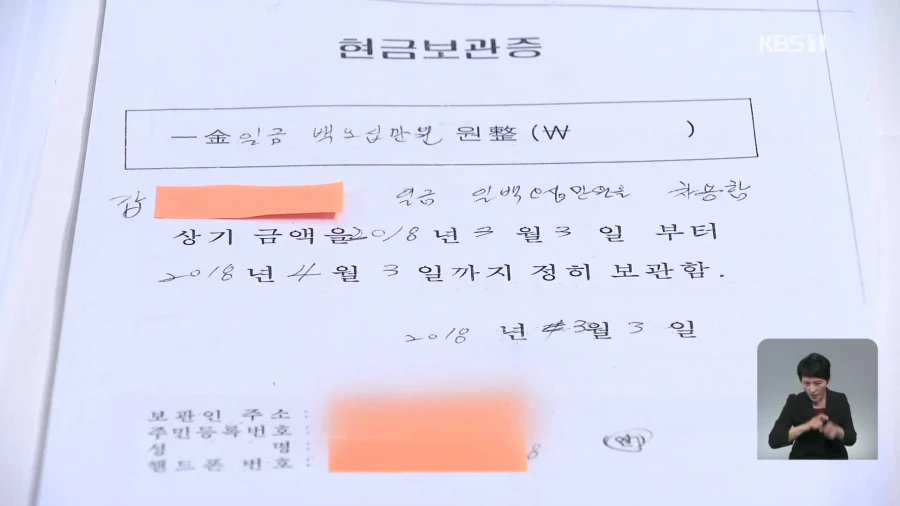 KBS 1
현금보관증
一金 일금 백오십만원 원整 (₩ )
갑 일금 일백오십만원을 차용함
상기 금액을 2018 년 3 월 3 일 부터
2018 년 4 월 3 일까지 정히 보관함.
2018 년 3월 3 일
보관인 주소 :
주민등록번호 :
성 명 :
핸드폰 번호 : 8